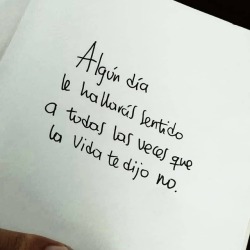 Algún día
le hallarás sentido
a todas las veces que
la vida te dijo no.